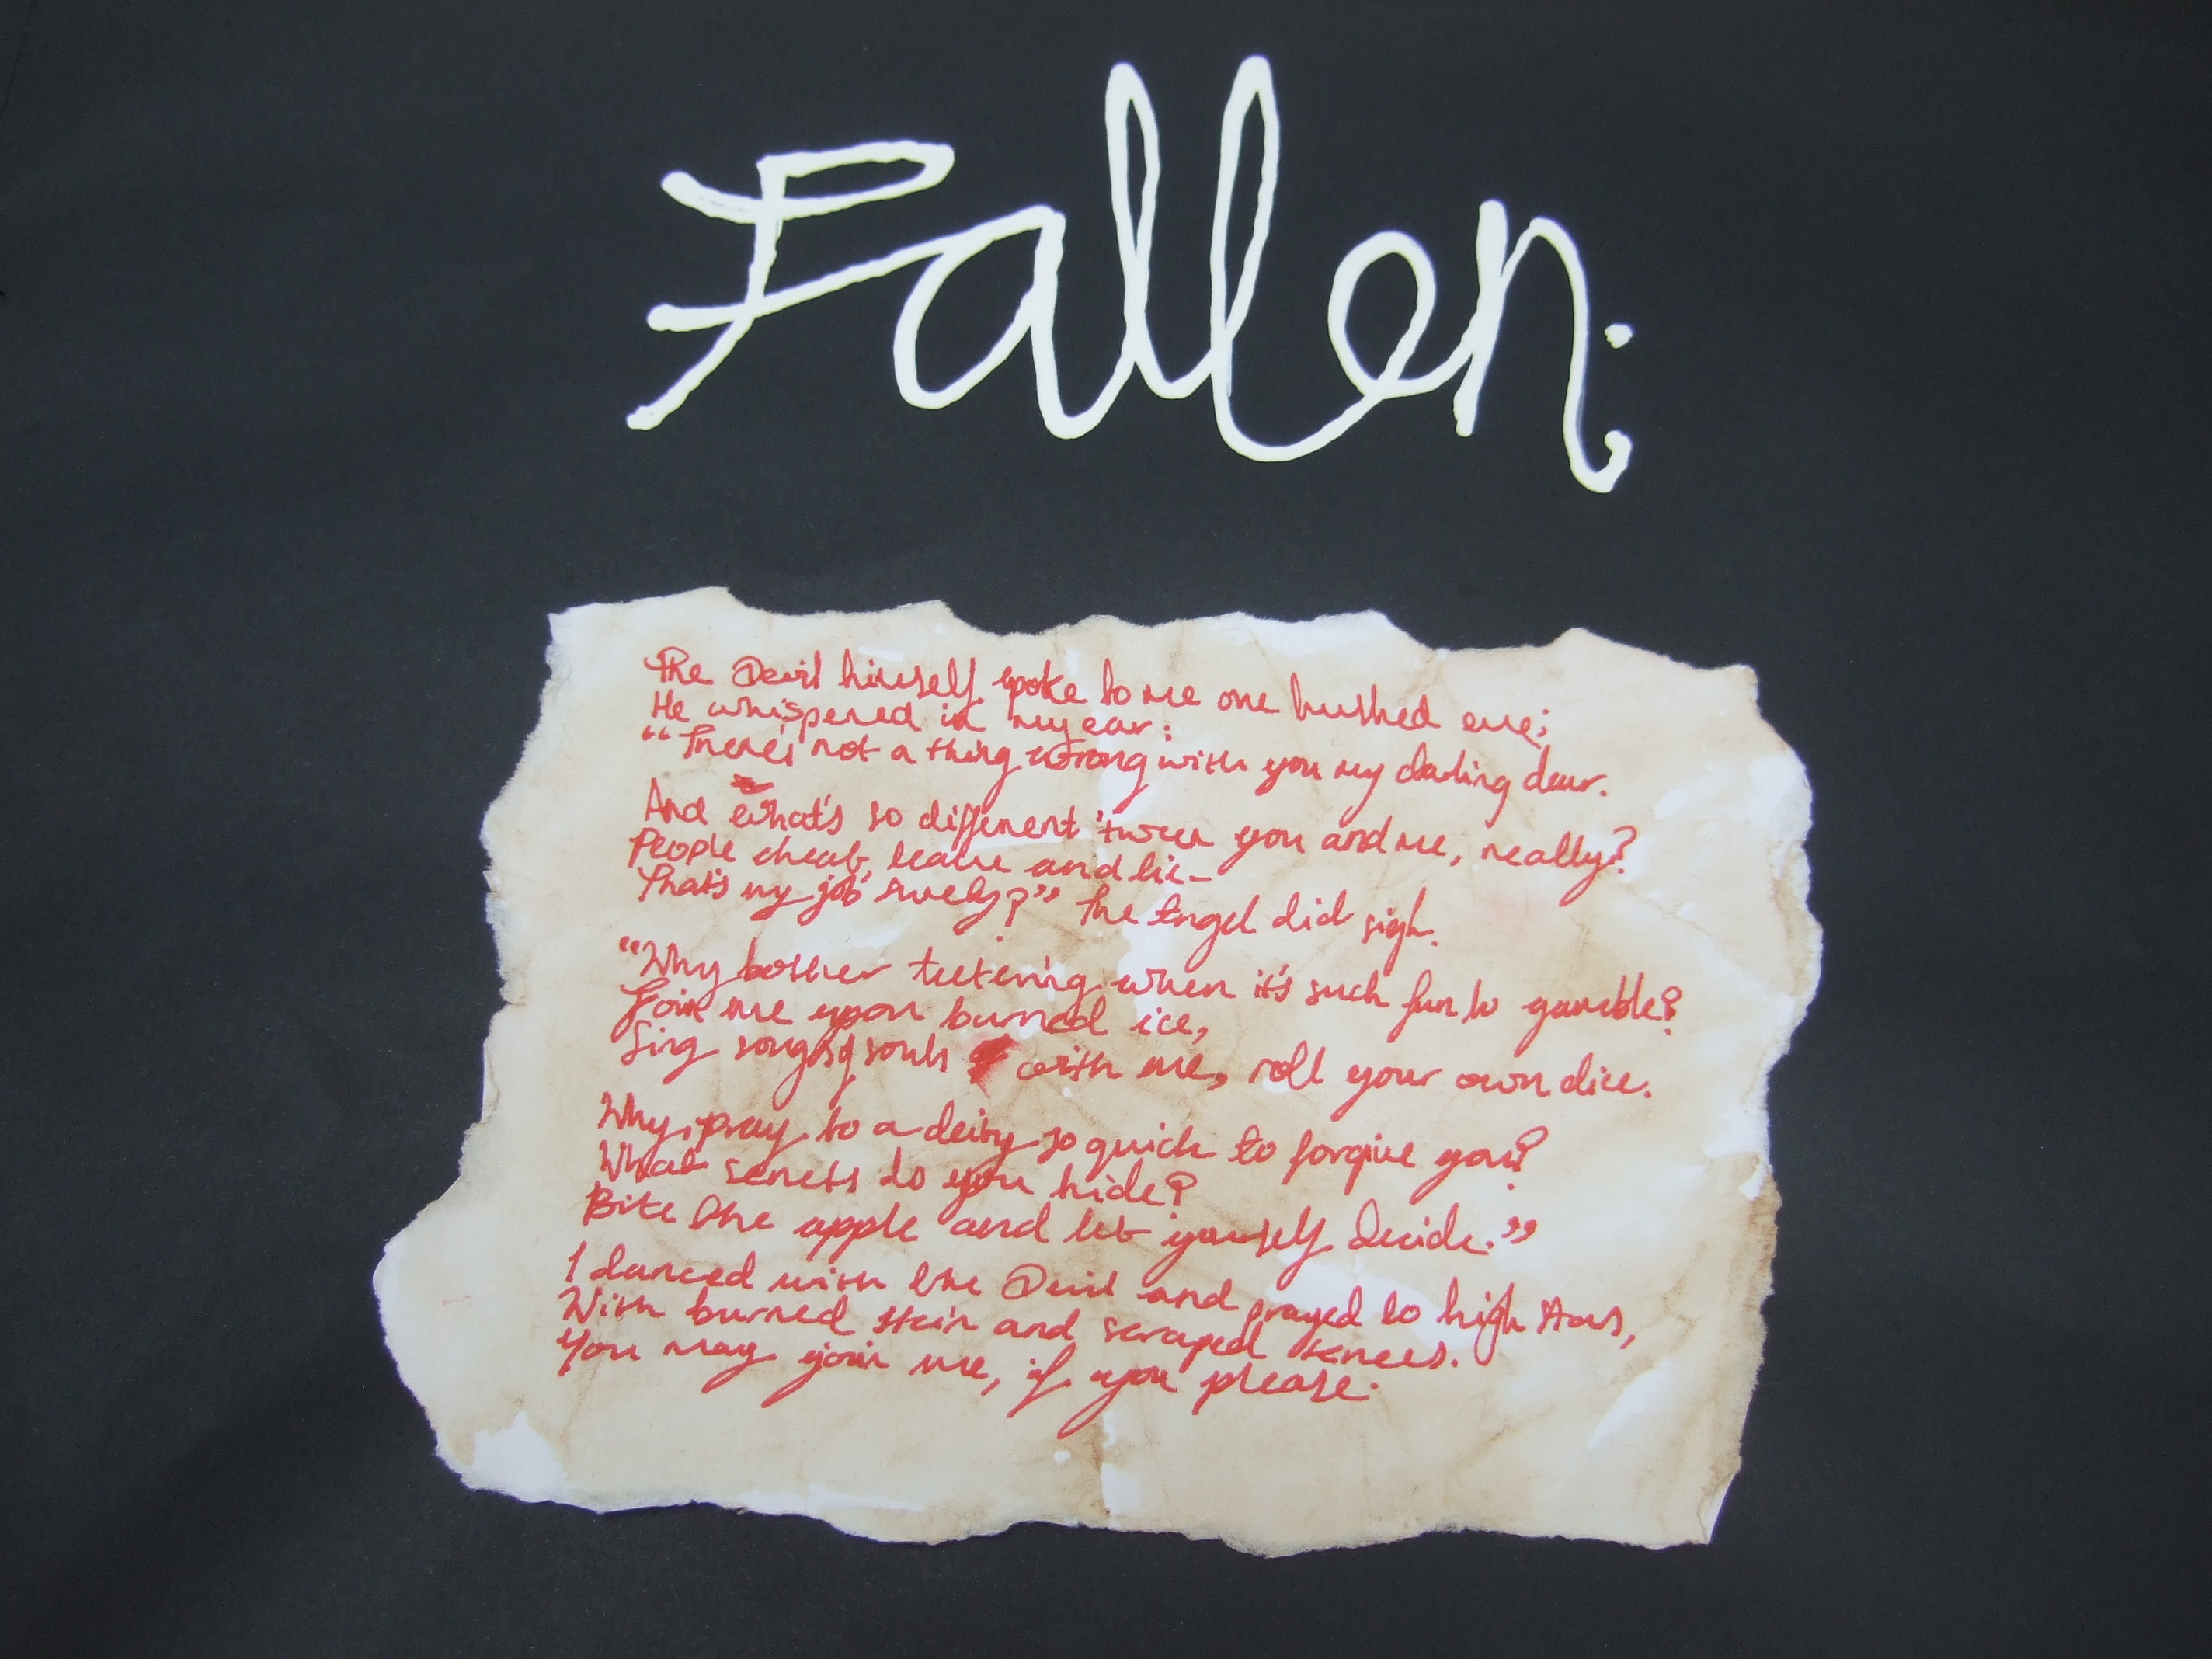 Fallen.
The Devil himself spoke to me one hushed eve;
He whispered in my ear:
“There's not a thing wrong with you my darling dear.
And what's so different 'tween you and me, really?
People cheat, leave and lie–
That's my job surely?” The Angel did sigh.
“Why bother teetering when it's such fun to gamble?
Join me upon burned ice,
Sing songs of souls with me, roll your own dice.
Why pray to a deity so quick to forgive you?
What secrets do you hide?
Bite the apple and let yourself decide.”
I danced with the Devil and prayed to high stars,
With burned skin and scraped knees.
You may join me, if you please.